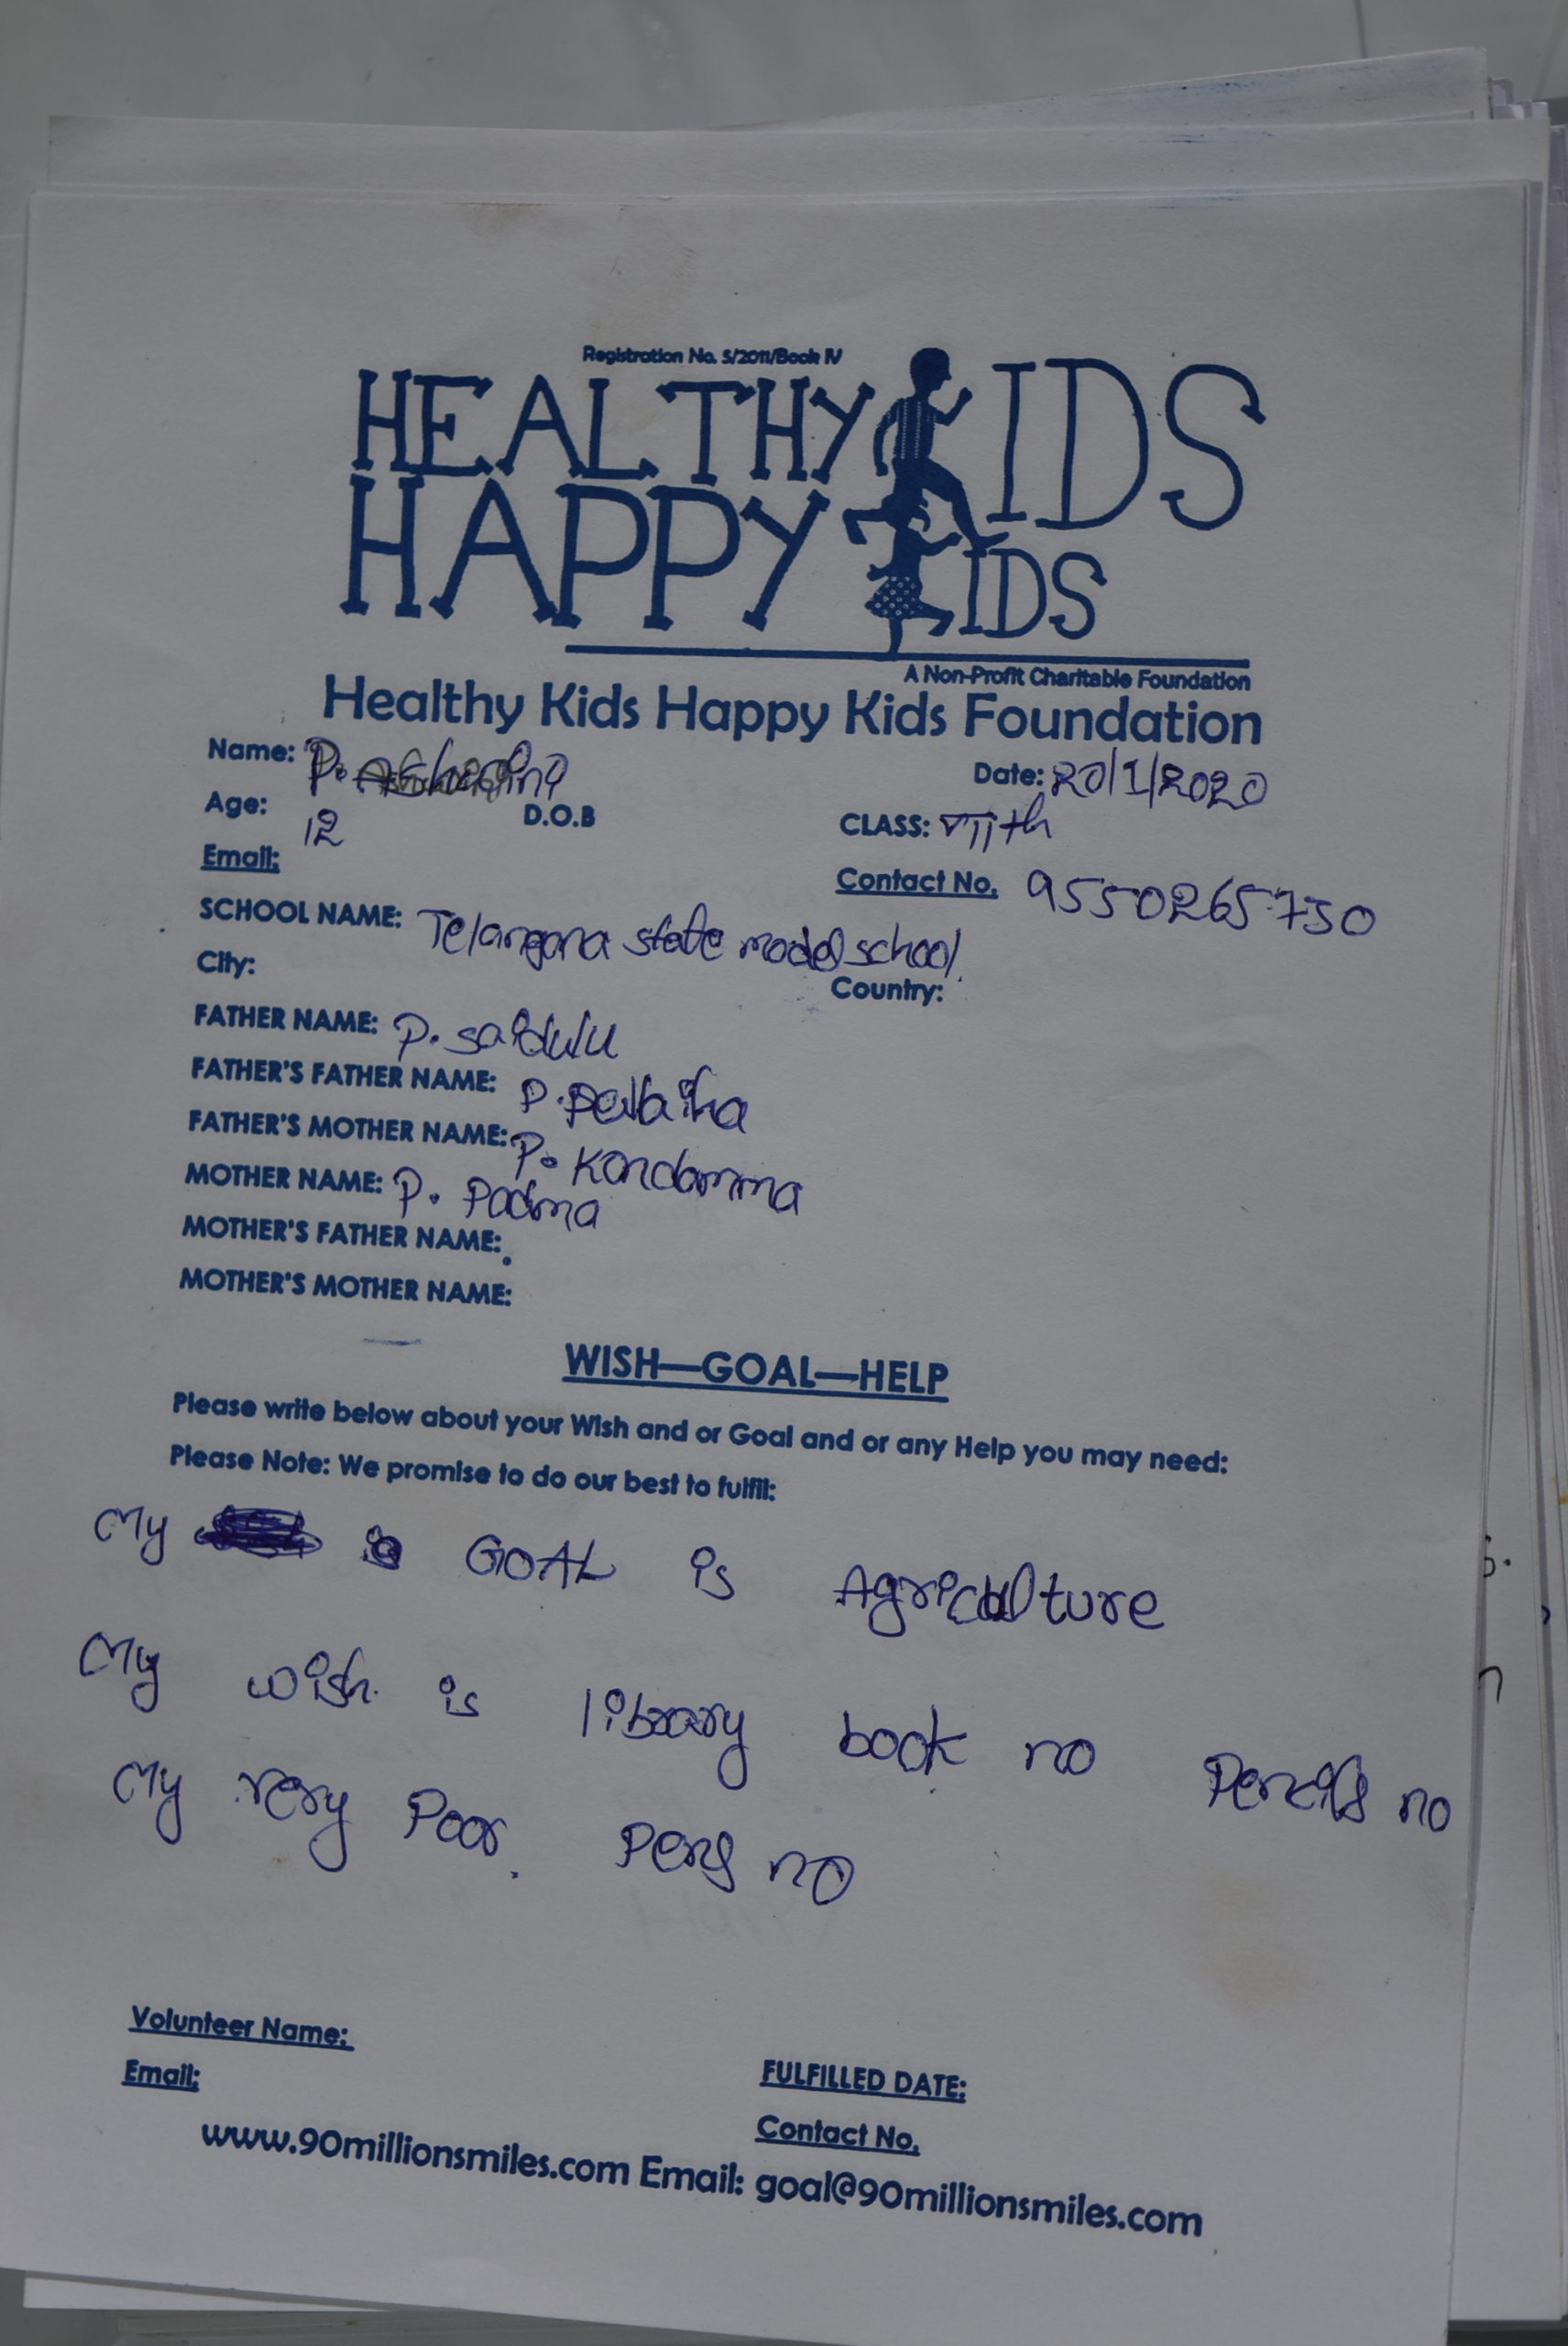 Registration No. 5/2011/Book IV
HEALTHY KIDS
HAPPY KIDS
A Non-Profit Charitable Foundation
Healthy Kids Happy Kids Foundation
Name: P. Date: 20/1/2020
Age: 12 D.O.B CLASS: VIIth
Email: Contact No. 9550265730
SCHOOL NAME: Telangana state model school.
City: Country:
FATHER NAME: P. saidulu
FATHER'S FATHER NAME: P.
FATHER'S MOTHER NAME: P. Kondamma
MOTHER NAME: P. Padma
MOTHER'S FATHER NAME:
MOTHER'S MOTHER NAME:
WISH—GOAL—HELP
Please write below about your Wish and or Goal and or any Help you may need:
Please Note: We promise to do our best to fulfil:
My GOAL is Agriculture
My wish is library book no Pencils no
My very Poor. Pens no
Volunteer Name:
Email: FULFILLED DATE:
Contact No.
www.90millionsmiles.com Email: goal@90millionsmiles.com